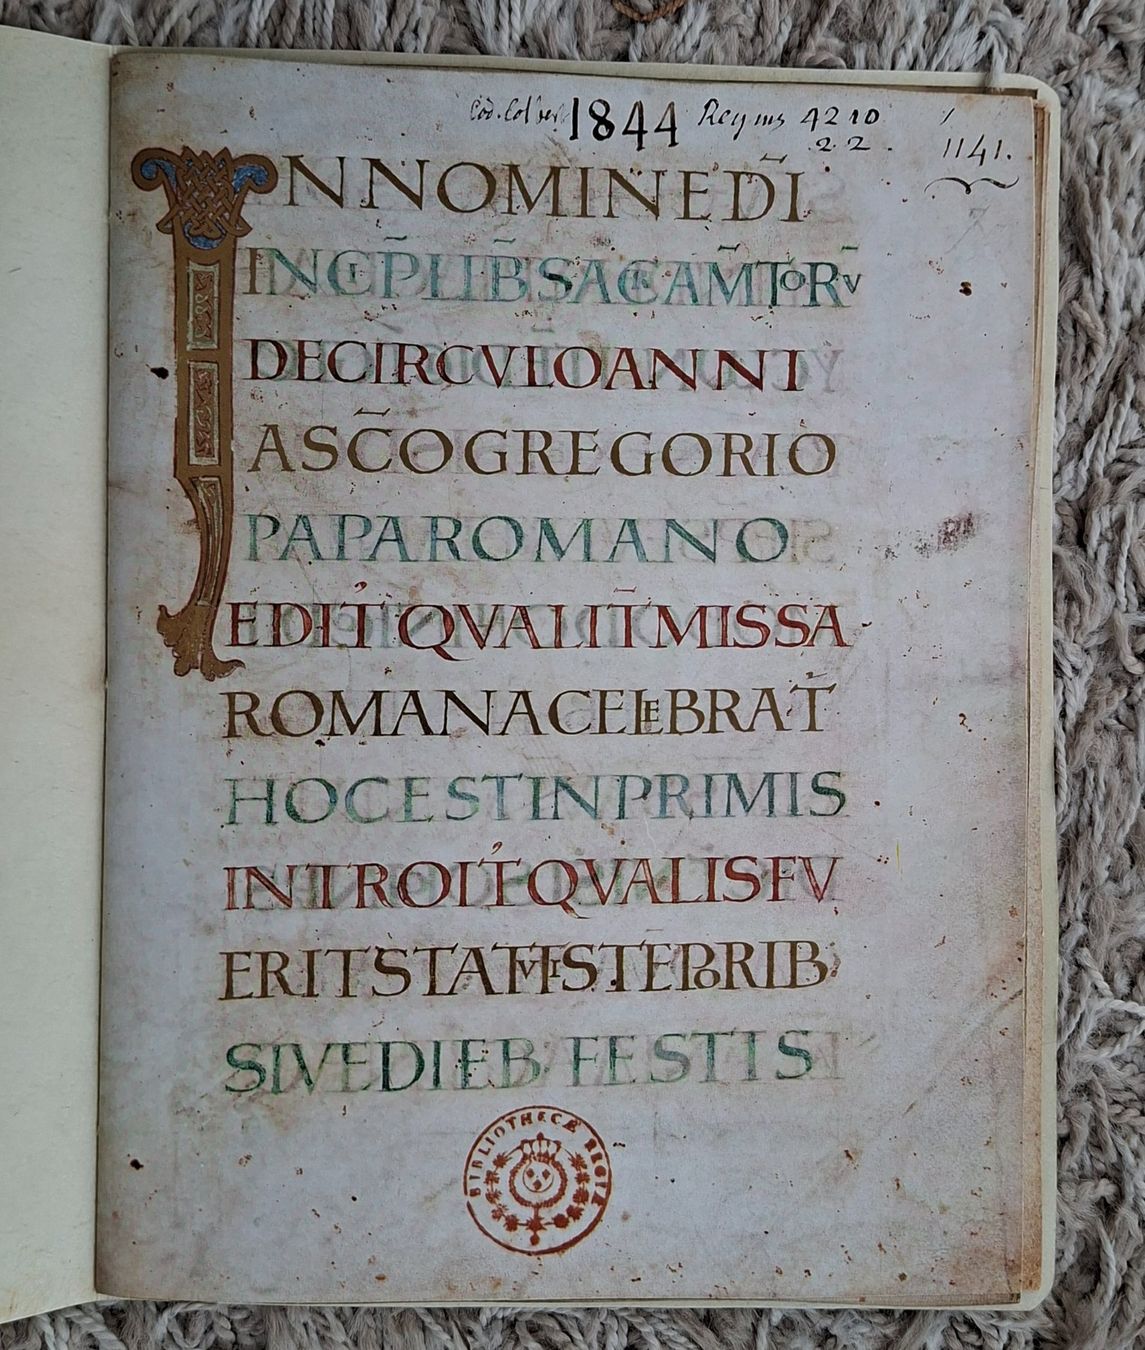 Cod. Colbert 1844 Regius 4210 1141.
2.2.
INNOMINEDI
INCIPLIBSACRAMTORV
DECIRCVLOANNI
ASCOGREGORIO
PAPAROMANO
EDIT'QVALITMISSA
ROMANACELEBRAT
HOCESTINPRIMIS
INTROIT'QVALISFV
ERITSTATVTISTEPORIB;
SIVEDIEB. FESTIS
BIBLIOTHECÆ REGIÆ